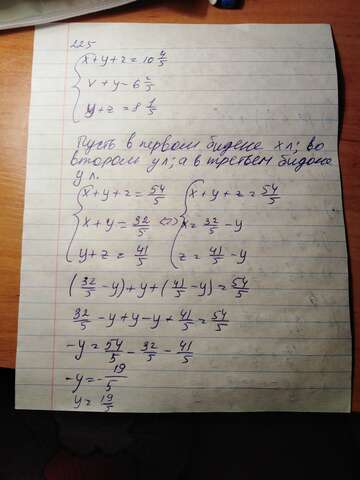 225
x+y+z=10 4/5
x+y=6 2/5
y+z=8 1/5
Пусть в первом бидоне x л; во
втором y л; а в третьем бидоне
y л.
x+y+z=54/5 x+y+z=54/5
x+y=32/5 <=> x=32/5-y
y+z=41/5 z=41/5-y
(32/5-y)+y+(41/5-y)=54/5
32/5-y+y-y+41/5=54/5
-y=54/5-32/5-41/5
-y=-19/5
y=19/5